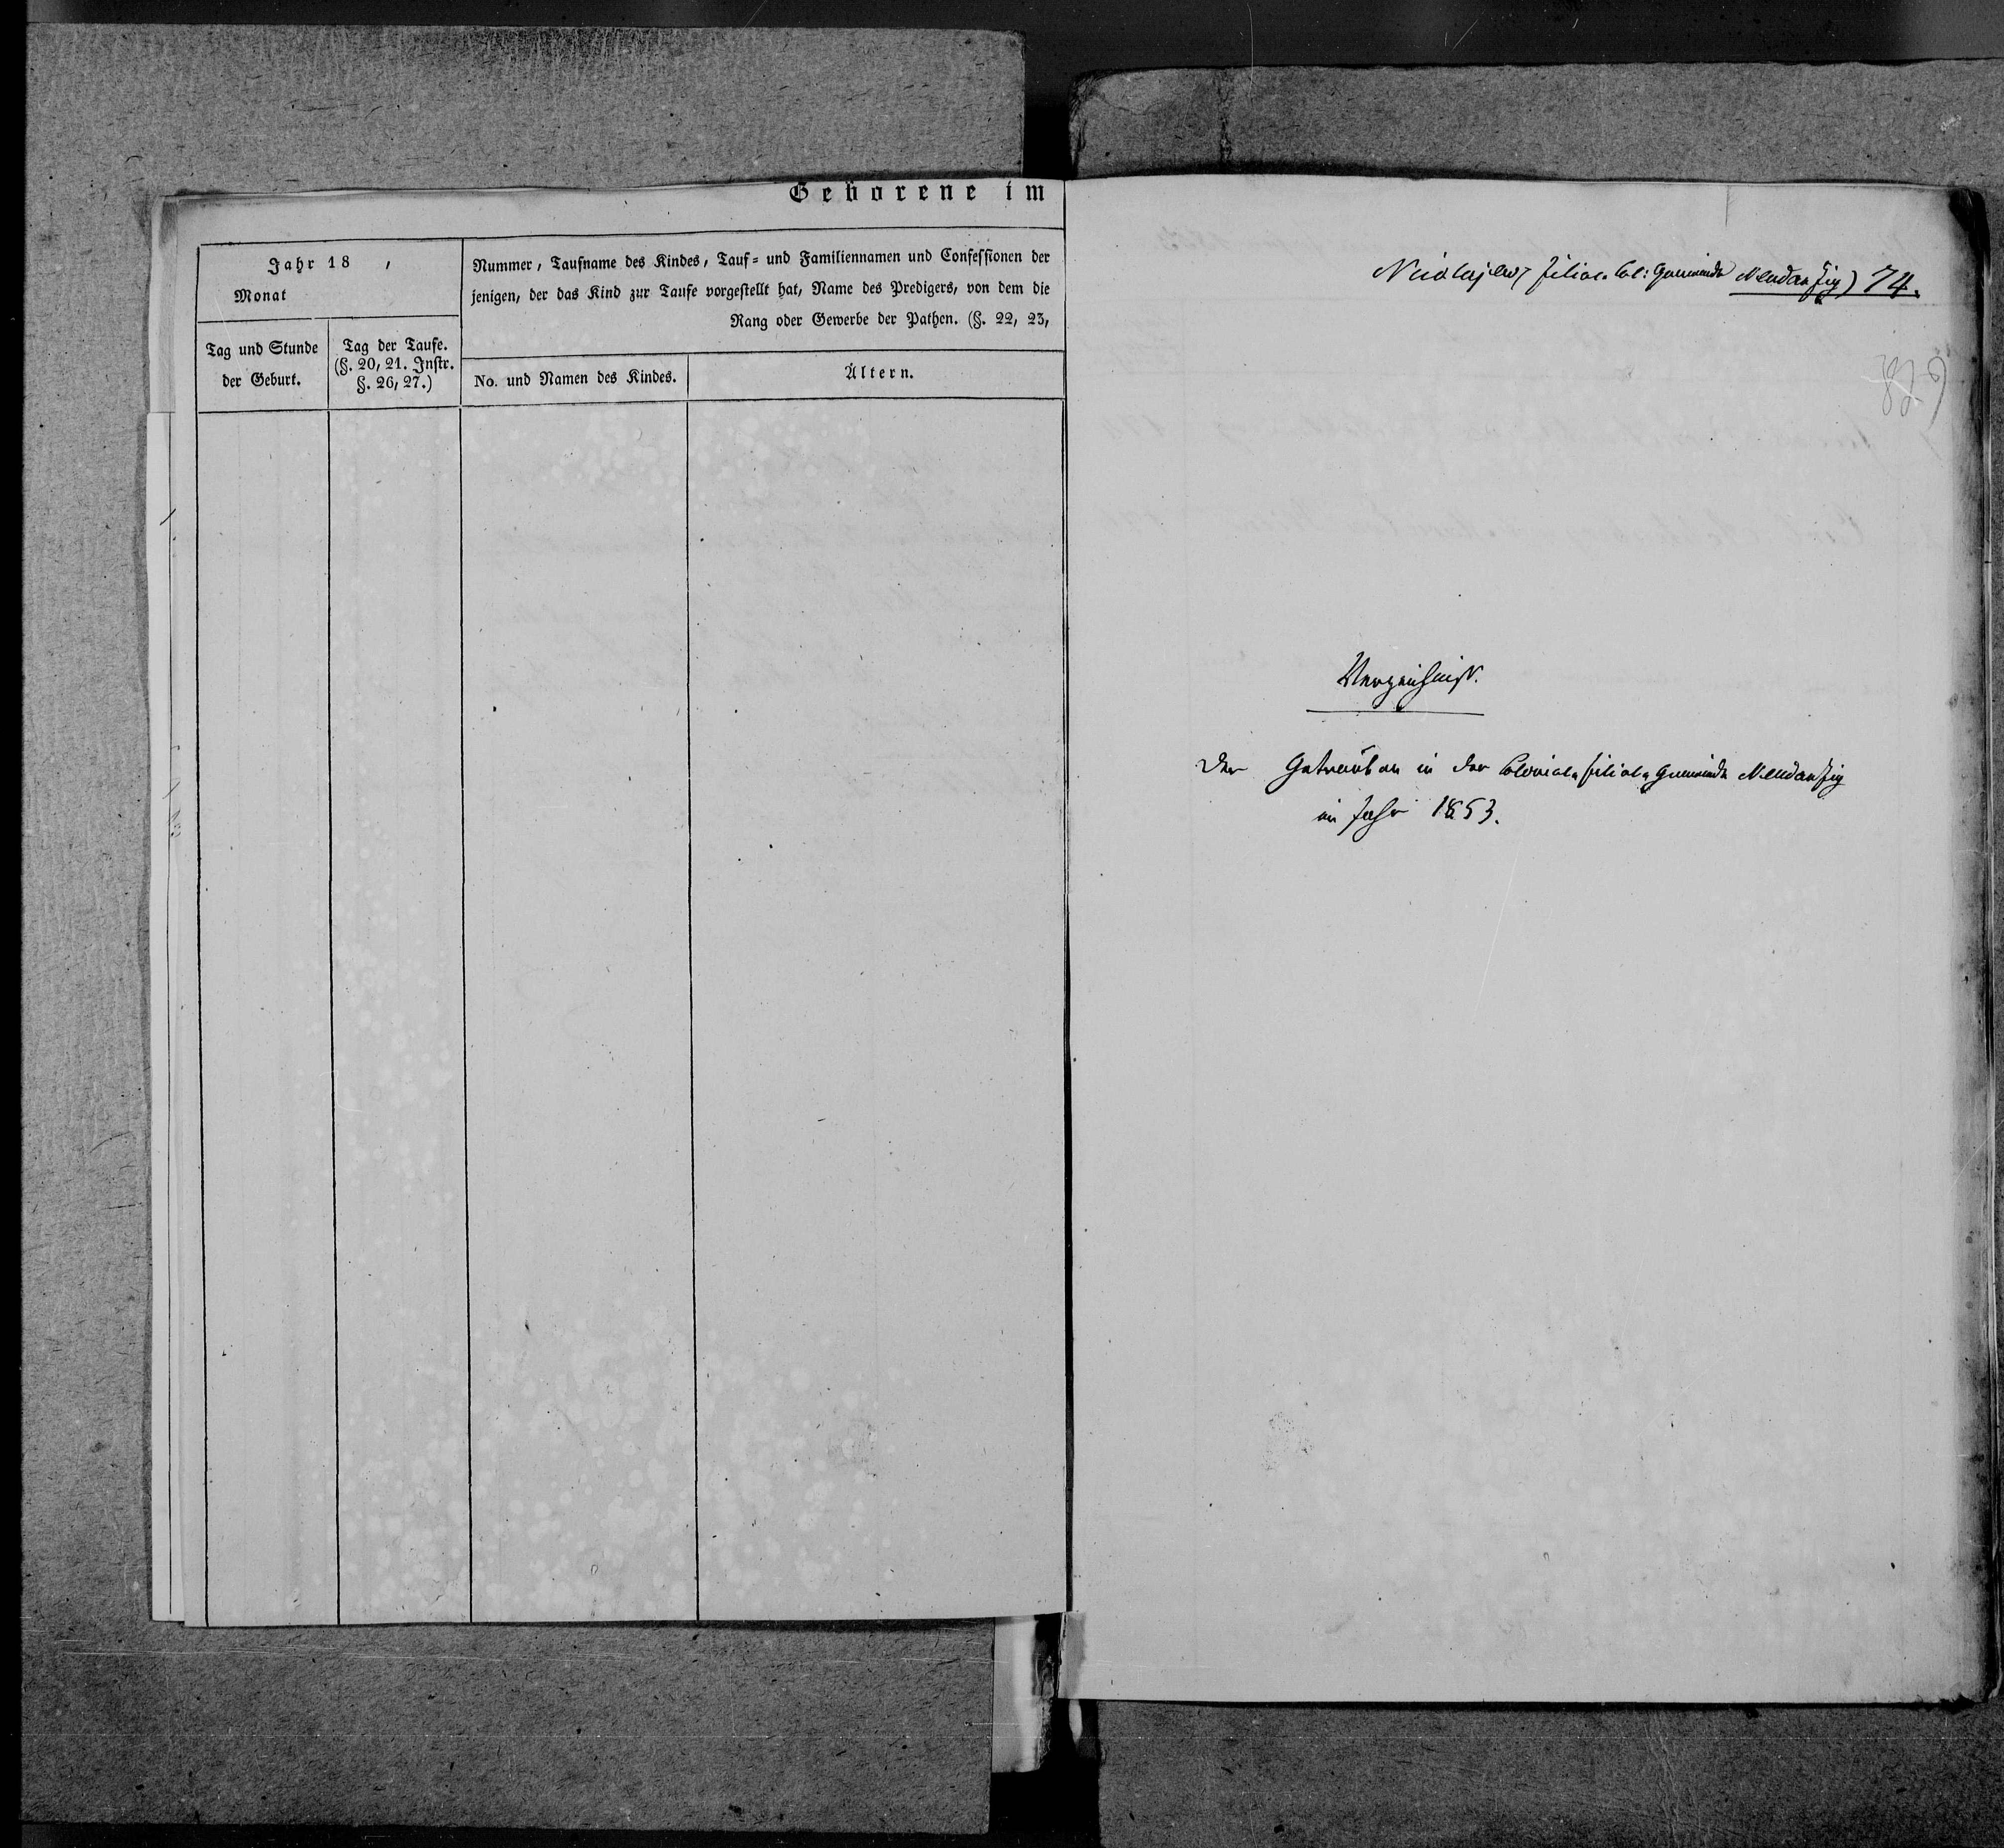 Geborene im
Jahr 18 ,
Monat
Nummer, Taufname des Kindes, Tauf- und Familiennamen und Confessionen der
jenigen, der das Kind zur Taufe vorgestellt hat, Name des Predigers, von dem die
Rang oder Gewerbe der Pathen. (§. 22, 23,
Tag und Stunde
der Geburt.
Tag der Taufe.
(§. 20, 21. Instr.
§. 26, 27.)
No. und Namen des Kindes.
Ältern.
Nicolajew, Filial. Col: Gemeinde Neudanzig) 74.
Verzeichniß.
Der Getrauten in der Colonial Filial Gemeinde Neudanzig
im Jahr 1853.